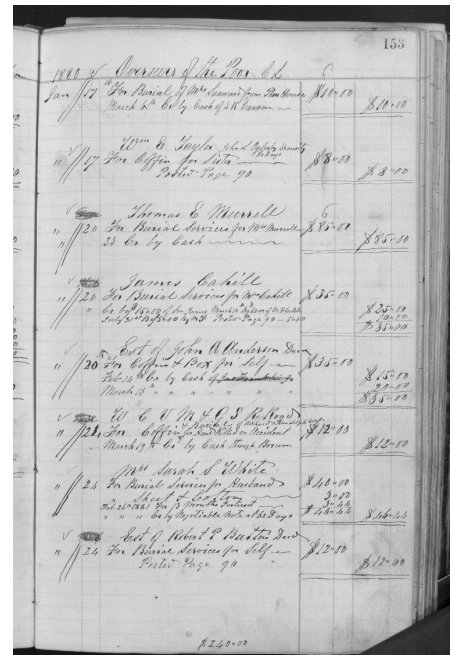 153
1880 Overseers of the Poor
Jan 17 For Burial of Mrs Seaward from Poor House $10=00
March 6th Cr by Cash of $10=00
Wm E Taylor John L
" 17 For Coffin for Sister $8=00
Posted Page 90 $8=00
Thomas E Murrell
" 20 For Burial Services for Mrs Murrell $85=00
" 23 Cr by Cash $85=00
James Cahill
" 20 For Burial Services for Mrs Cahill $35=00
Cr by $25.00 of Son James March $25=00
Posted Page 90 10=00
$35=00
Est of John A Anderson Decd
" 20 For Coffin & Box for Self $35=00
Feb 14th Cr by Cash of $15=00
March 13 " " " " 20=00
$35=00
W C V M & G S R Road
" 21 For Coffin & for Accident $12=00
March 19 Cr by Cash $12=00
Mrs Sarah S White
" 23 For Burial Services for Husband $40=00
3=00
Feb 24th 1881 For Months Interest
" " " Cr by Negotiable Note at 30 Days $44=44
Est of Robert P Burton Decd
" 24 For Burial Services for Self $12=00
Posted Page 90 $12=00
$240=00